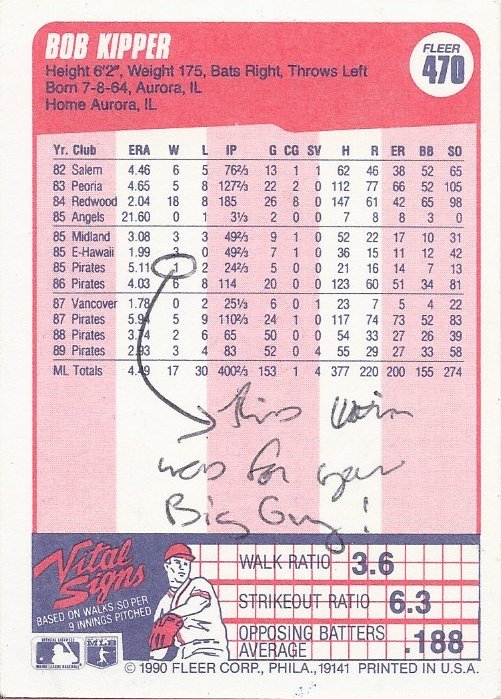 BOB KIPPER
FLEER
470
Height 6'2", Weight 175, Bats Right, Throws Left
Born 7-8-64, Aurora, IL
Home Aurora, IL
Yr. Club ERA W L IP G CG SV H R ER BB SO
82 Salem 4.46 6 5 76⅔ 13 1 1 62 46 38 52 65
83 Peoria 4.65 5 8 127⅔ 22 2 0 112 77 66 52 105
84 Redwood 2.04 18 8 185 26 8 0 147 61 42 65 98
85 Angels 21.60 0 1 3⅓ 2 0 0 7 8 8 3 0
85 Midland 3.08 3 3 49⅔ 9 1 0 52 22 17 10 31
85 E-Hawaii 1.99 0 49⅔ 7 1 0 36 15 11 12 42
85 Pirates 5.11 1 2 24⅔ 5 0 0 21 16 14 7 13
86 Pirates 4.03 6 8 114 20 0 0 123 60 51 34 81
87 Vancouver 1.78 0 2 25⅓ 6 0 1 23 7 5 4 22
87 Pirates 5.94 5 9 110⅔ 24 1 0 117 74 73 52 83
88 Pirates 3.74 2 6 65 50 0 0 54 33 27 26 39
89 Pirates 2.93 3 4 83 52 0 4 55 29 27 33 58
ML Totals 4.49 17 30 400⅔ 153 1 4 377 220 200 155 274
this win
was for you
Big Guy!
Vital
Signs
BASED ON WALKS/SO PER
9 INNINGS PITCHED
WALK RATIO 3.6
STRIKEOUT RATIO 6.3
OPPOSING BATTERS
AVERAGE .188
MLB
© 1990 FLEER CORP., PHILA., 19141 PRINTED IN U.S.A.